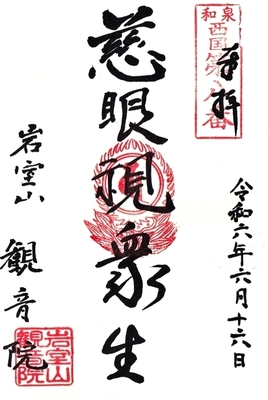 奉拝
和泉
西国第八番
令和六年六月十六日
慈眼視衆生
岩室山
観音院
岩室山
観音院